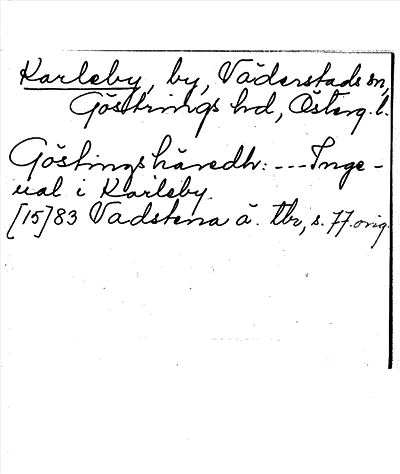 Karleby, by, Väderstads sn,
Göstrings hd, Österg. l.
Göstings häredh: --- Inge-
ual i Karleby.
[15]83 Vadstena ä. tbr, s. 77. orig.